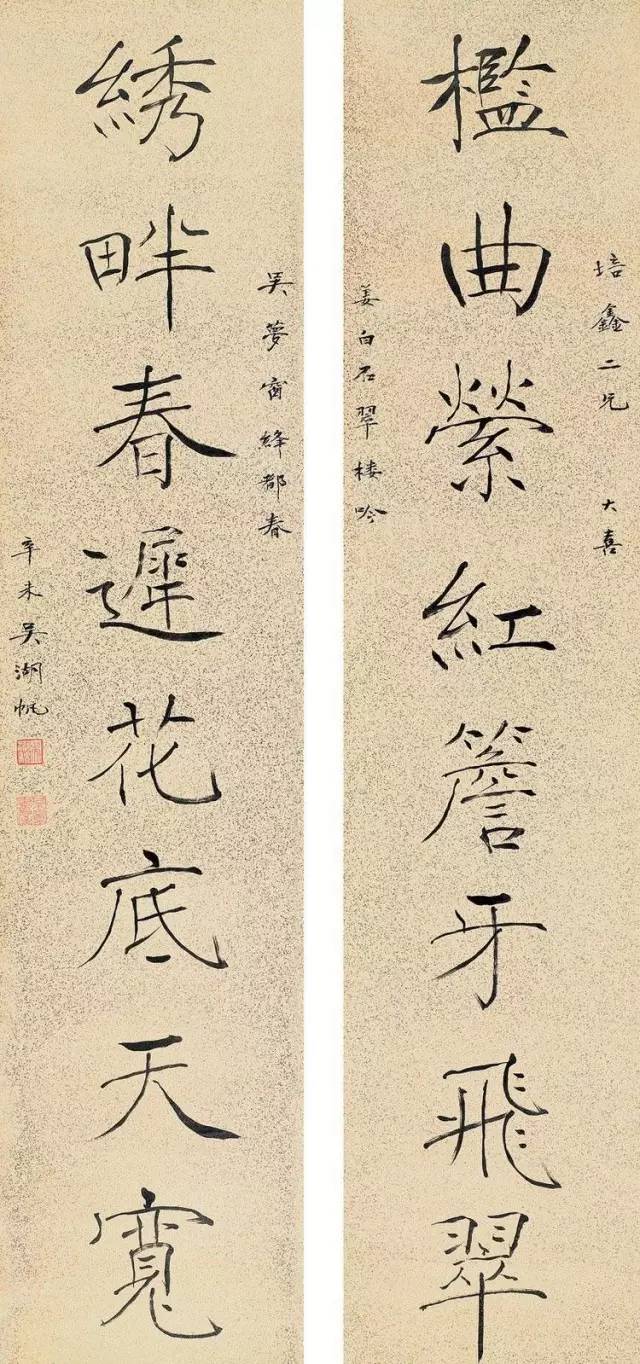 培鑫二兄 大喜
檻曲縈紅簷牙飛翠
姜白石翠楼吟
吴夢窗絳都春
綉畔春遲花底天寬
辛未吴湖帆